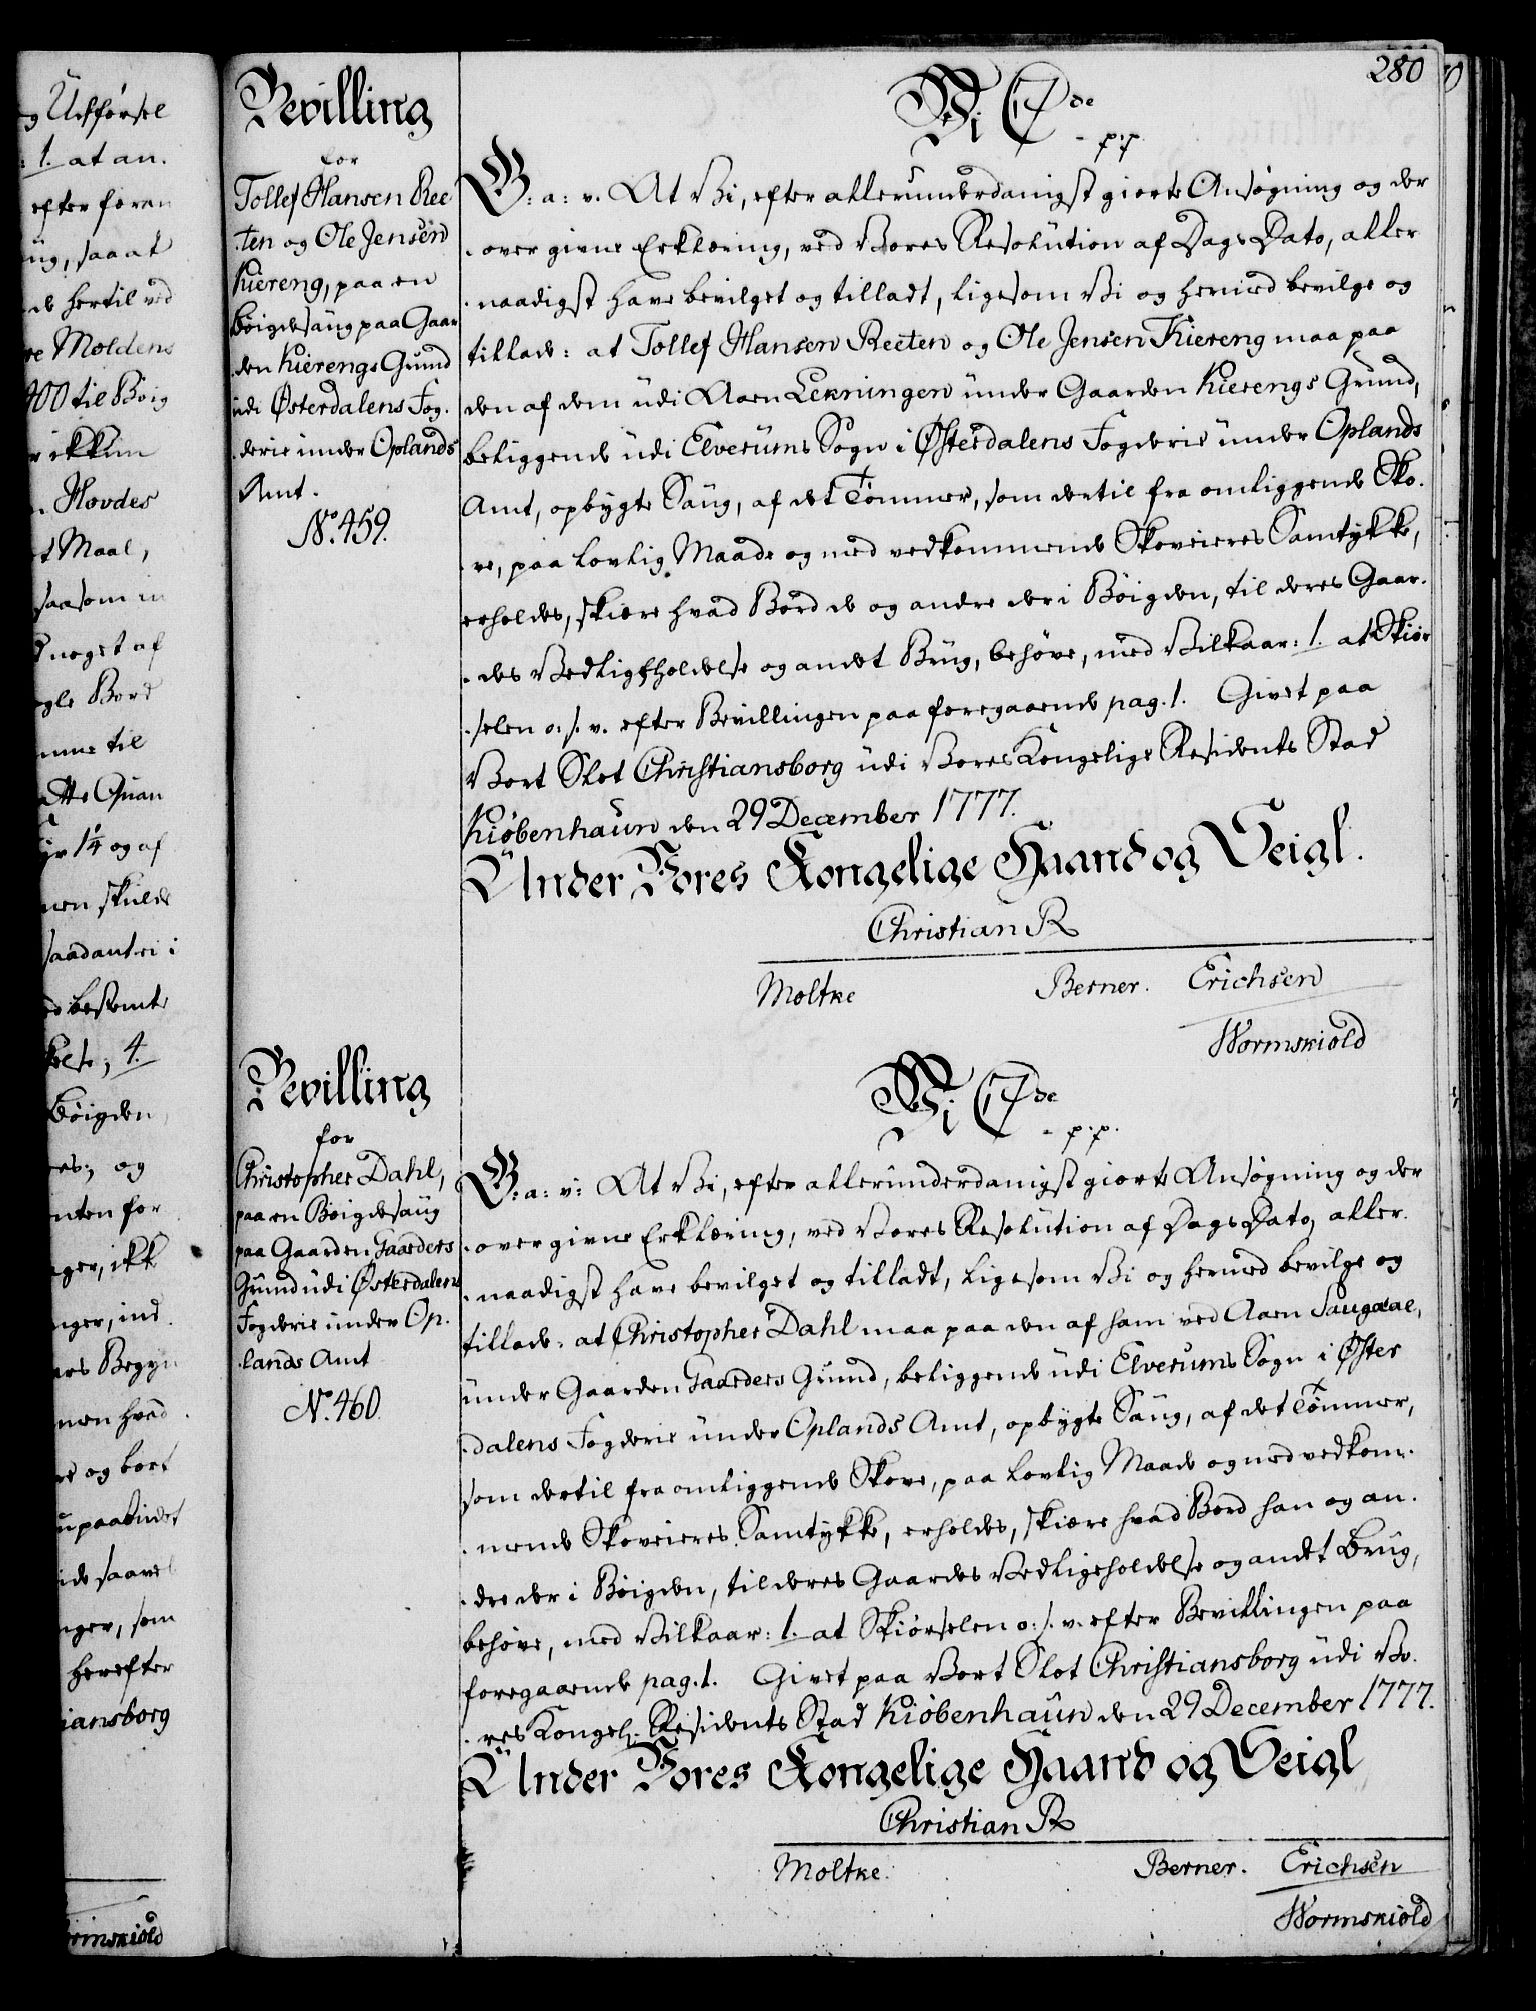 280
g Udførsel
1. at an.
efter foran
ug, saa at
de hertil ved
re Moldens
400 til Böig
r ikkun
n. Hovdes
et Maal,
saasom in
d noget af
ogle Bord
mme til
atte Qvan
yr 1/4 og af
men skulde
saadant ei i
ed bestemte
kelse; 4.
Böigden
es; og
nten for
nger, ikk
nger, ind.
ars Begyn
men hvad
re og bort
u paabudet
ide saavel
nger, som
herefter
iansborg
ormskiold
Bevilling
for
Tollef Hansen Ree
.ten og Ole Jensen
Kiereng, paa en
Böigdesaug paa Gaar
.den Kierengs Grund
udi Østerdalens Fog.
.derie under Oplands
Amt.
No. 459.
Vi C 7de
- p.p.
G: a: v. At Vi, efter allerunderdanigst giorte Ansøgning og der
.over givne Erklæring, ved Vores Resolution af Dags Dato, aller
.naadigst have bevilget og tilladt, ligesom Vi og hermed bevilge og
tillade: at Tollef Hansen Reeten og Ole Jensen Kiereng maa paa
den af dem udi Aaen Lerningen under Gaarden Kierengs Grund,
beliggende udi Elverums Sogn i Østerdalens Fogderie under Oplands
Amt, opbygte Saug, af det Tömmer, som dertil fra omliggende Sko.
.ve, paa lovlig Maade og med vedkommende Skoveieres Samtykke,
erholdes, skiære hvad Bord de og andre der i Böigden, til deres Gaar.
.des Vedligeholdelse og andet Brug, behøve, med Vilkaar: 1. at Skiør
.selen o. s. v. efter Bevillingen paa foregaaende pag. 1. Givet paa
Vort Slot Christiansborg udi Vores Kongelige Residents Stad
Kiøbenhaun den 29 December 1777.
Under Vores Kongelige Haand og Seigl.
Christian R
Moltke Berner. Erichsen
Wormskiold
Bevilling
for
Christopher Dahl,
paa en Böigdesaug
paa Gaarden Gaarders
Grund udi Østerdalens
Fogderie under Op.
.lands Amt
No. 460.
Vi C 7de
- p.p.
G: a: v: At Vi, efter allerunderdanigst giorte Ansøgning og der
.over givne Erklæring, ved Vores Resolution af Dags Dato, aller.
.naadigst have bevilget og tilladt, ligesom Vi og hermed bevilge og
tillade: at Christopher Dahl maa paa den af ham ved Aaen Saugaae,
under Gaarden Gaarders Grund, beliggende udi Elverums Sogn i Øster
.dalens Fogderie under Oplands Amt, opbygte Saug, af det Tömmer,
som dertil fra omliggende Skove, paa lovlig Maade og med vedkom.
.mende Skoveieres Samtykke, erholdes, skiære hvad Bord han og an.
.dre der i Böigden, til deres Gaardes Vedligeholdelse og andet Brug,
behøve, med Vilkaar: 1. at Skiørselen o. s. v. efter Bevillingen paa
foregaaende pag. 1. Givet paa Vort Slot Christiansborg udi Vo.
.res Kongel. Residents Stad Kiøbenhaun den 29 December 1777.
Under Vores Kongelige Haand og Seigl
Christian R
Moltke. Berner. Erichsen
Wormskiold